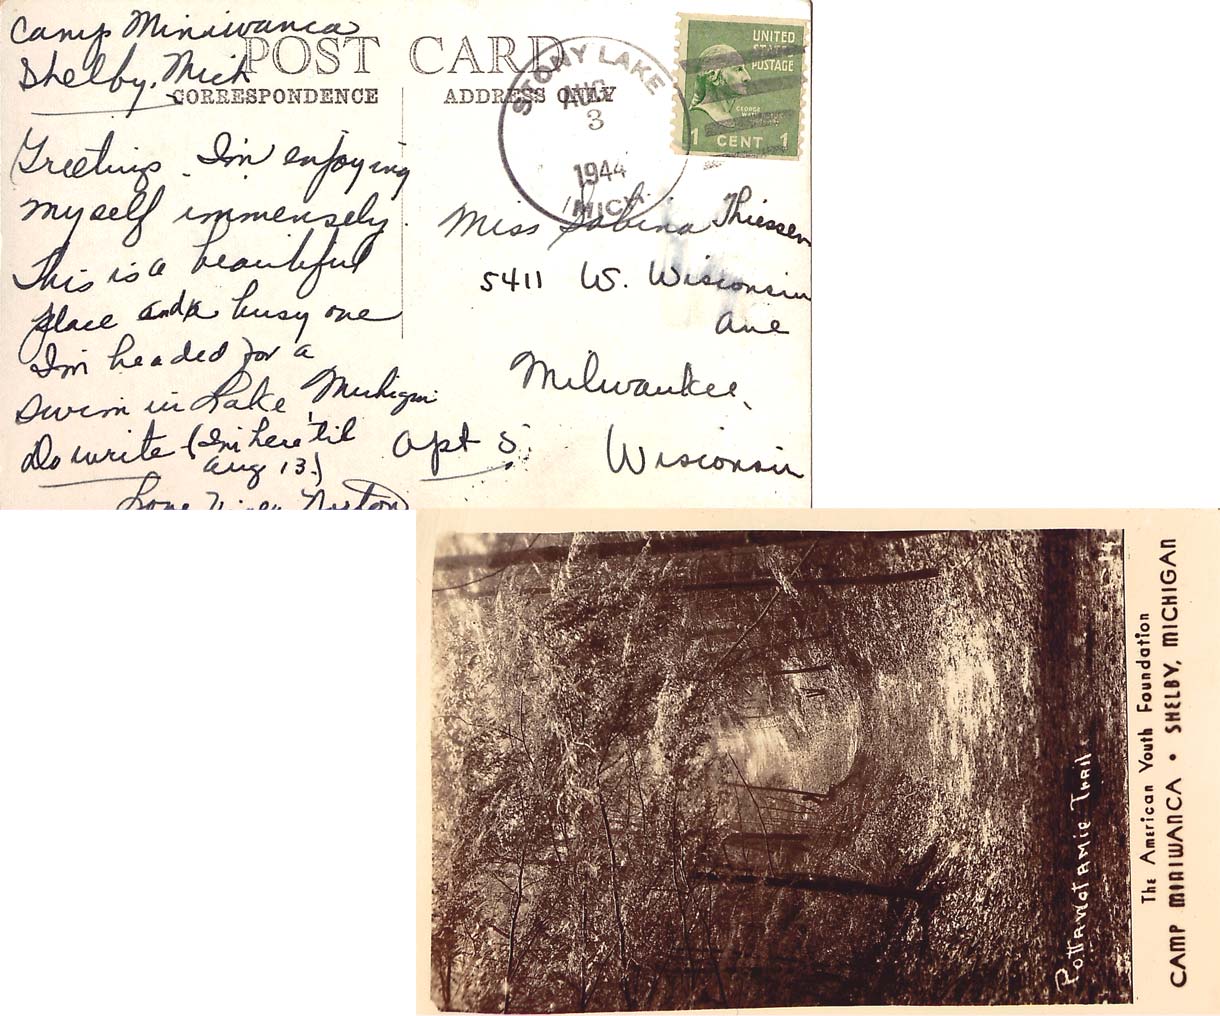 Camp Miniwanca
Shelby, Mich
POST CARD
CORRESPONDENCE
ADDRESS ONLY
STONY LAKE
AUG
3
1944
MICH.
UNITED
STATES
POSTAGE
GEORGE
WASHINGTON
1 CENT 1
Greetings. I'm enjoying
myself immensely.
This is a beautiful
place and a busy one
I'm headed for a
swim in Lake Michigan
Do write (I'm here 'til
Aug 13.)
Love Norton
Miss Sabina Thiessen
5411 W. Wisconsin
Ave
Milwaukee,
Apt 5.
Wisconsin
Pottawotamie Trail
The American Youth Foundation
CAMP MINIWANCA • SHELBY, MICHIGAN